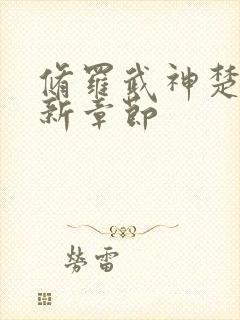 脩羅武神楚
新章節
勞雷